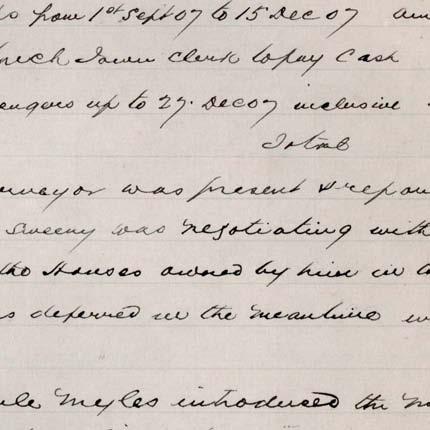 from 1st Sept 07 to 15 Dec 07 am
which Town Clerk to pay Cash
engers up to 27. Dec 07 inclusive
Total
rveyor was present & repor
Sweeny was negotiating with
the Houses owned by him in
s deferred in the meantime
Myles introduced the